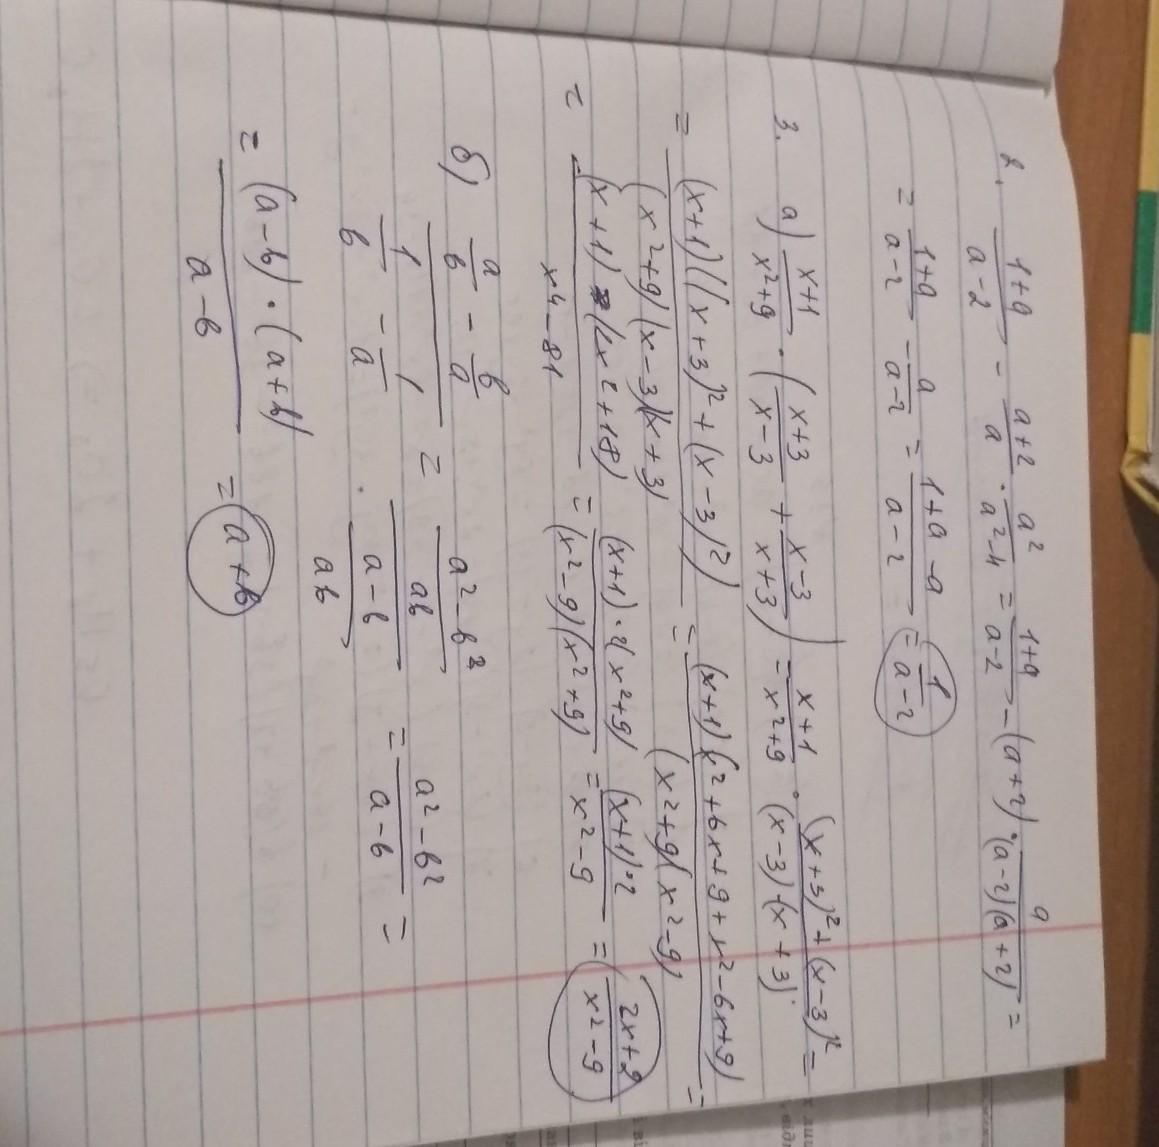 2. (1+a)/(a-2) - (a+2)/a · a²/(a²-4) = (1+a)/(a-2) - (a+2) · a/((a-2)(a+2)) =
= (1+a)/(a-2) - a/(a-2) = (1+a-a)/(a-2) = 1/(a-2)
3. а) (x+1)/(x²+9) · ((x+3)/(x-3) + (x-3)/(x+3)) = (x+1)/(x²+9) · ((x+3)²+(x-3)²)/((x-3)·(x+3)) =
= (x+1)((x+3)²+(x-3)²)/((x²+9)(x-3)(x+3)) = (x+1)(x²+6x+9+x²-6x+9)/((x²+9)(x²-9)) =
= (x+1)(2x²+18)/(x⁴-81) = (x+1)·2(x²+9)/((x²-9)(x²+9)) = (x+1)·2/(x²-9) = (2x+2)/(x²-9)
б) (a/b - b/a)/(1/b - 1/a) = ((a²-b²)/ab)/((a-b)/ab) = (a²-b²)/(a-b) =
= (a-b)·(a+b)/(a-b) = a+b